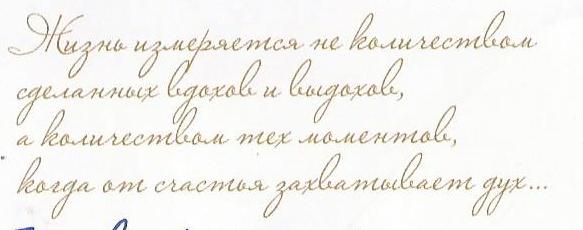 Жизнь измеряется не количеством
сделанных вдохов и выдохов,
а количеством тех моментов,
когда от счастья захватывает дух...